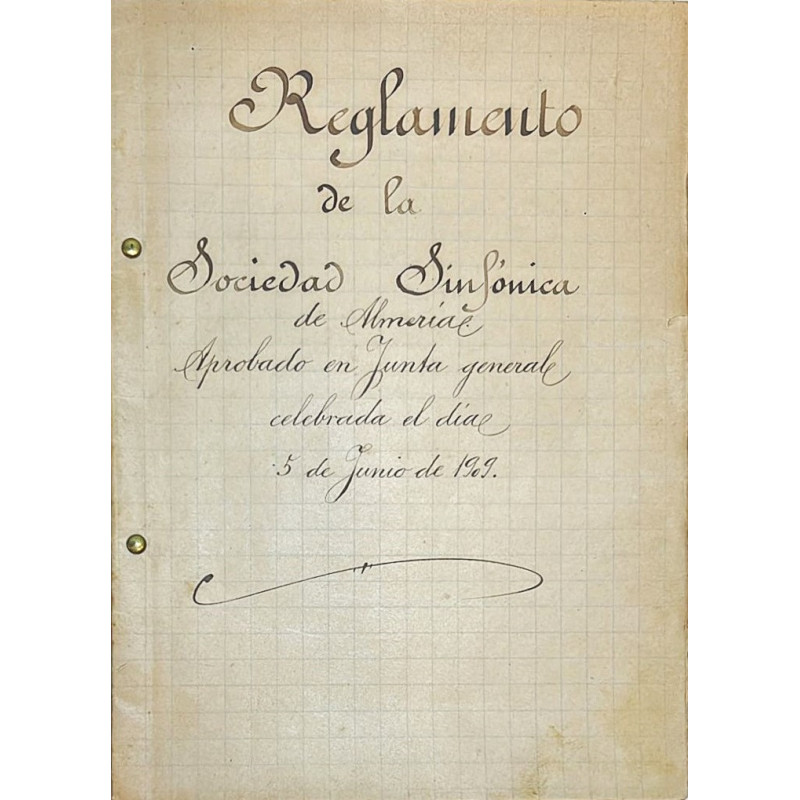 Reglamento
de la
Sociedad Sinfónica
de Almería
Aprobado en Junta general
celebrada el día
5 de Junio de 1909.